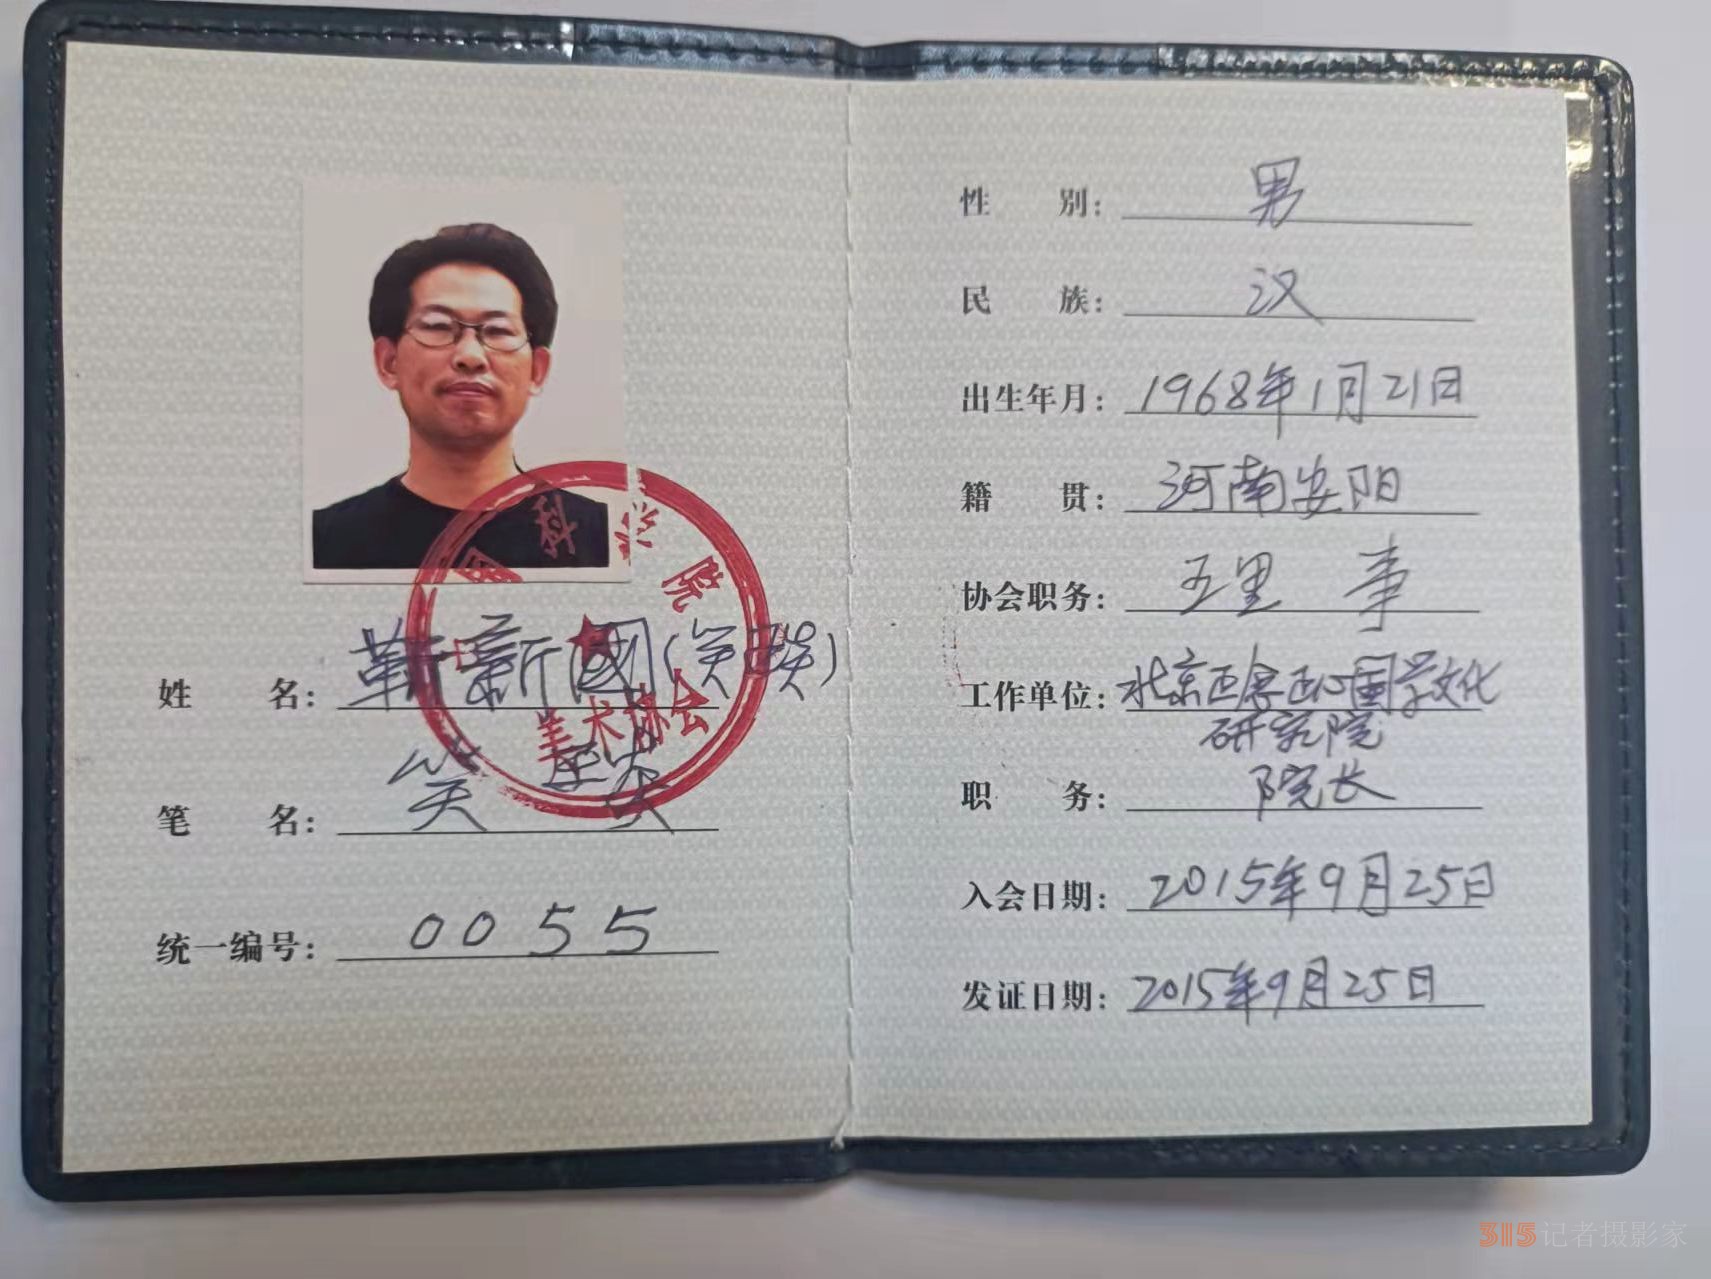 国科学院
美术协会
姓名: 靳新國(笑琰)
笔名: 笑琰
统一编号: 0055
性别: 男
民族: 汉
出生年月: 1968年1月21日
籍贯: 河南安阳
协会职务: 理事
工作单位: 北京正念正心国学文化
研究院
职务: 院长
入会日期: 2015年9月25日
发证日期: 2015年9月25日
315记者摄影家